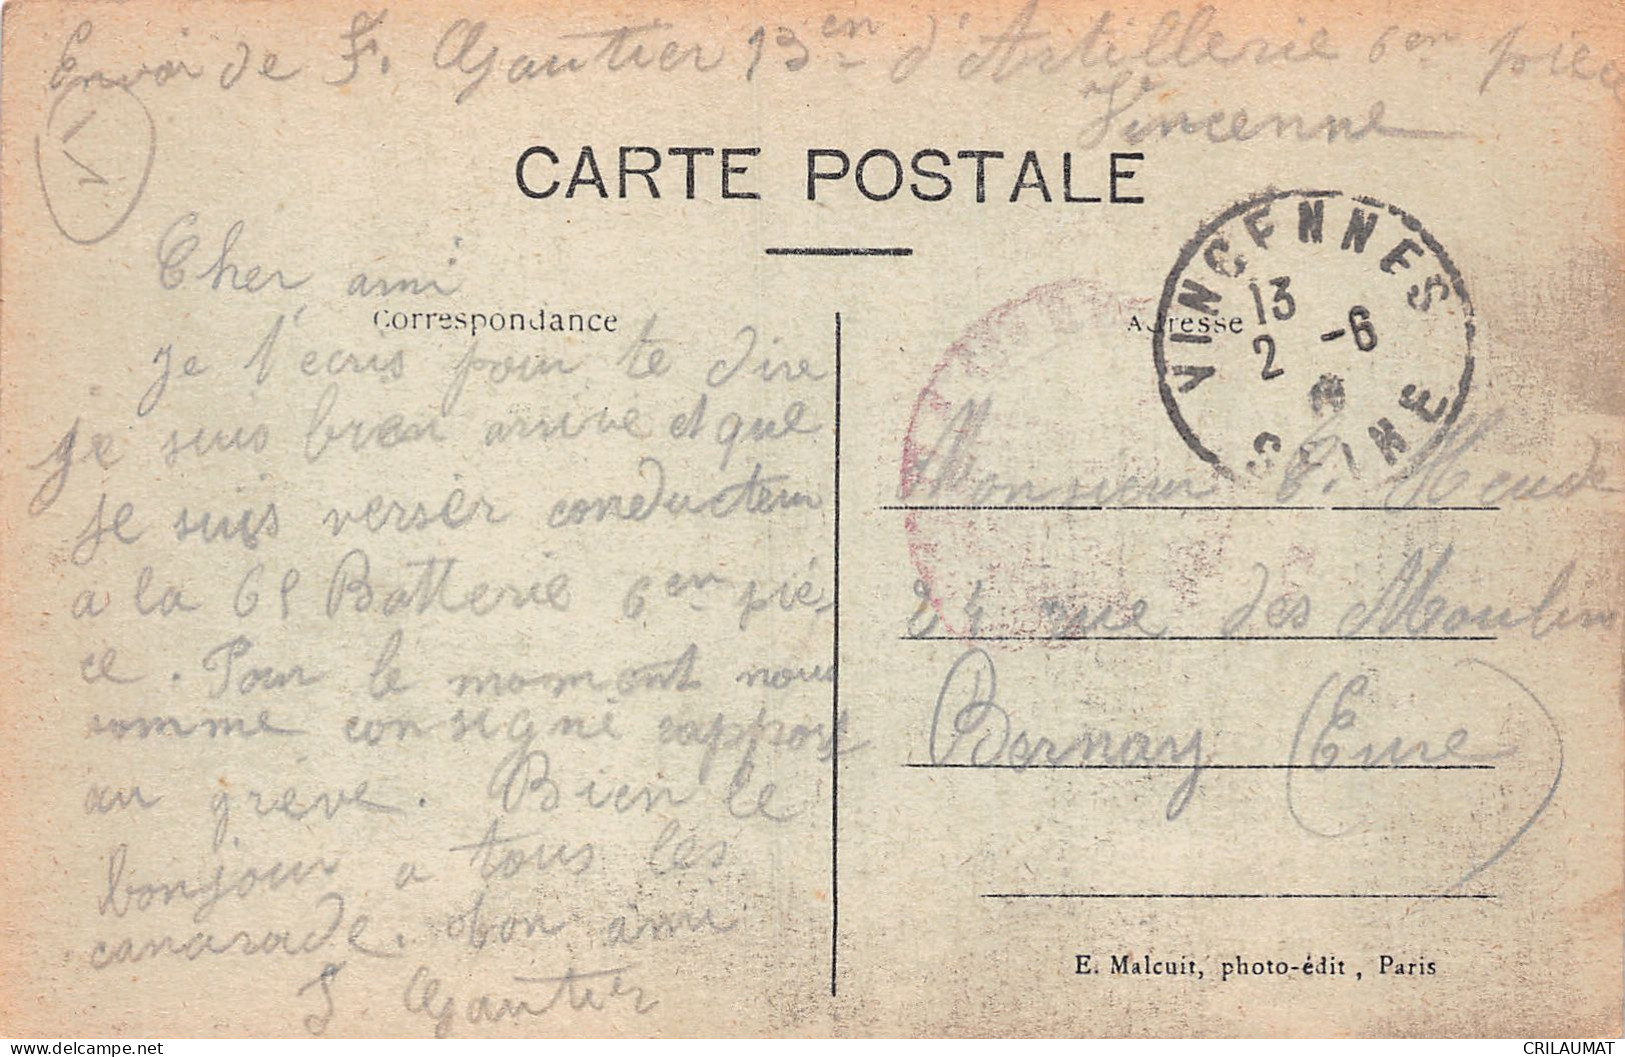 Envoi de F. Gautier 13en d'Artillerie 6en pièce
Vincenne
CARTE POSTALE
Cher ami
Correspondance
Je t'écris pour te dire
je suis bien arrivé et que
je suis verser conducteur
a la 61 Batterie 6en piè-
ce. Pour le momont nous
somme consigné rapport
au grève. Bien le
bonjour a tous les
camarade. ton ami
F. Gautier
VINCENNES
13
2 -6
SEINE
Adresse
Monsieur
24 rue des Moulin
Bernay (Eure)
E. Malcuit, photo-édit, Paris
delcampe.net
CRILAUMAT